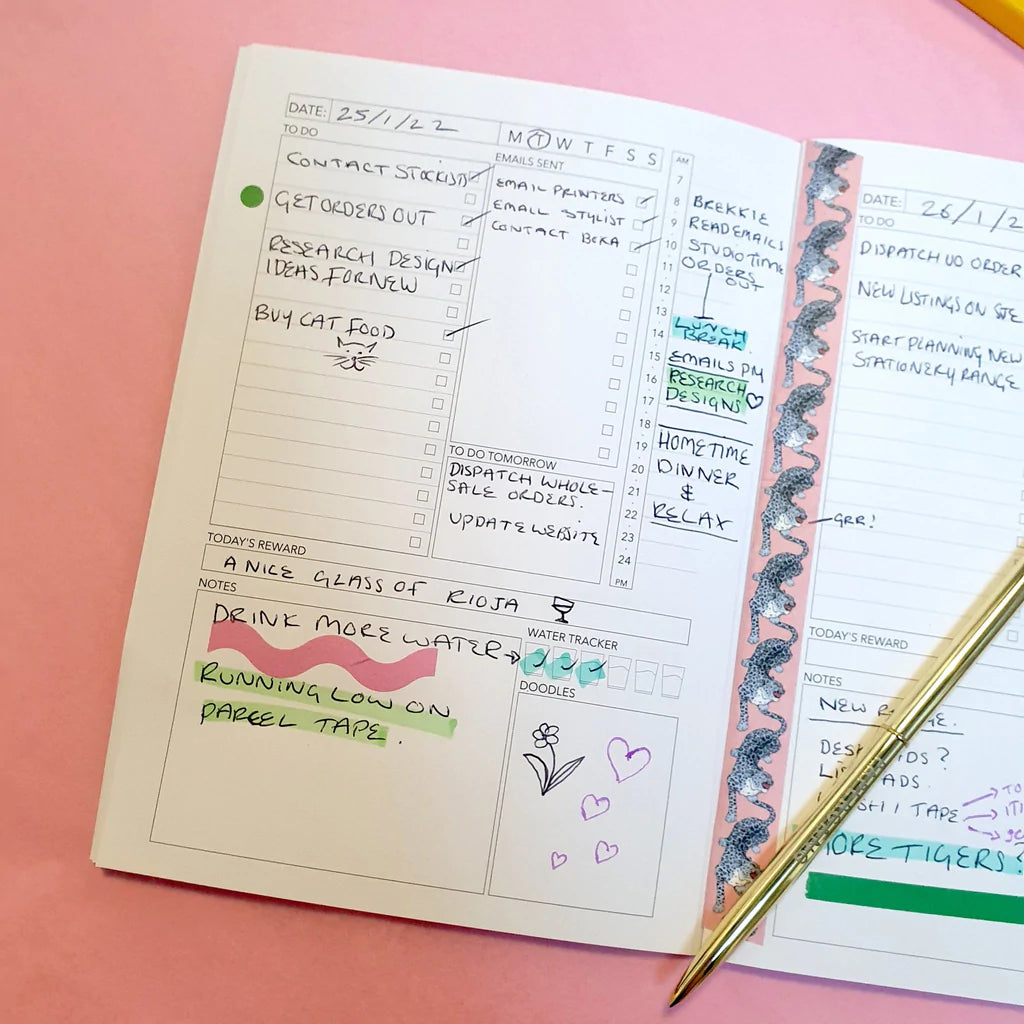 DATE: 25/1/22
M T W T F S S
TO DO
CONTACT STOCKISTS
GET ORDERS OUT
RESEARCH DESIGN
IDEAS FOR NEW
BUY CAT FOOD
EMAILS SENT
EMAIL PRINTERS
EMAIL STYLIST
CONTACT
TO DO TOMORROW
DISPATCH WHOLE-
SALE ORDERS.
UPDATE WEBSITE
AM
7
8 BREKKIE
9 READ EMAILS
10 STUDIO TIME
11 ORDERS
12 OUT
13 LUNCH
14 BREAK
15 EMAILS PM
16 RESEARCH
17 DESIGNS
18
19 HOMETIME
20 DINNER
21 &
22 RELAX
23
24
PM
TODAY'S REWARD
A NICE GLASS OF RIOJA
NOTES
DRINK MORE WATER
RUNNING LOW ON
PARCEL TAPE.
WATER TRACKER
DOODLES
DATE: 26/1/2
TO DO
DISPATCH UO ORDER
NEW LISTINGS ON SITE
START PLANNING NEW
STATIONERY RANGE
GRR!
TODAY'S REWARD
NOTES
NEW
TAPE
MORE TIGERS?